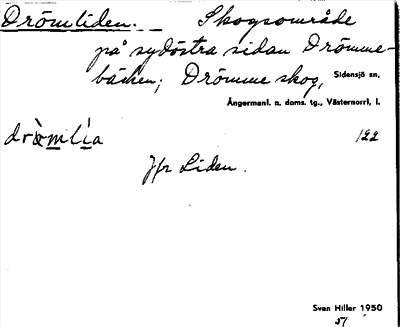 Drömliden. Skogsområde
på sydöstra sidan Drömme-
bäcken; Drömme skog,
Sidensjö sn.
Ångermanl. n. doms. tg., Västernorrl. l.
122
Jfr Liden.
Sven Hiller 1950
51